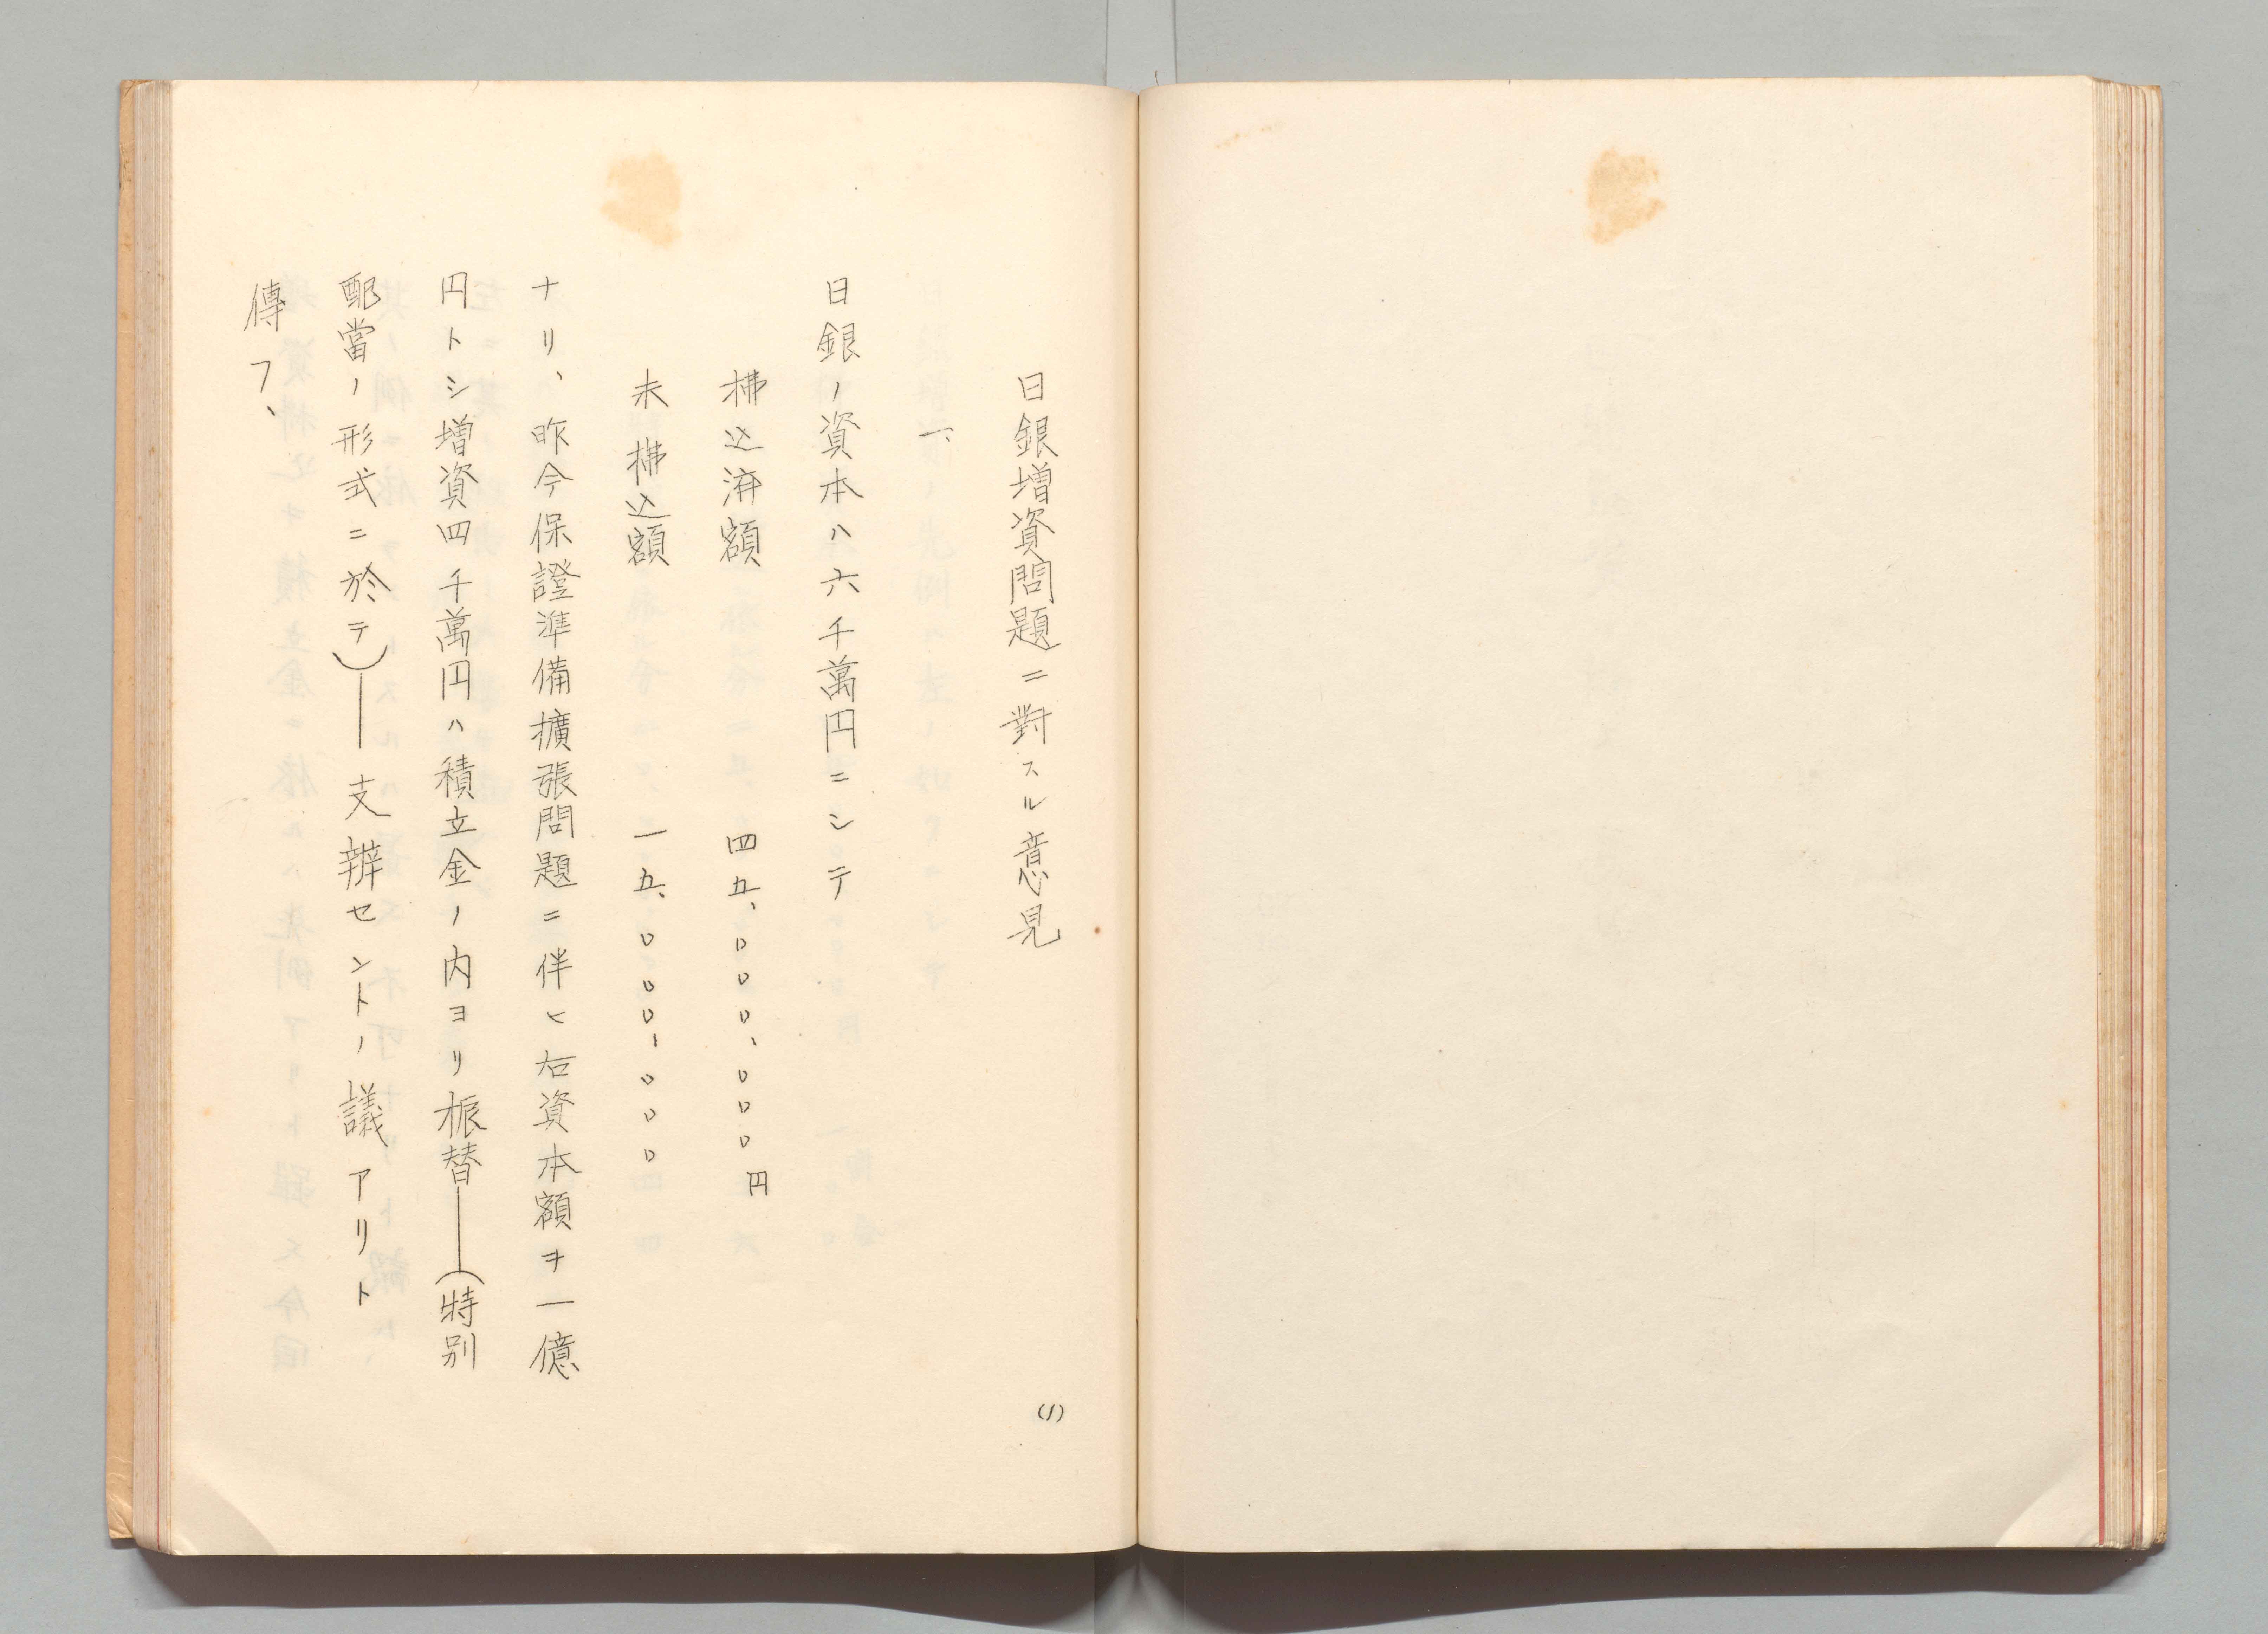 日銀増資問題ニ對スル意見
一、
日銀ノ資本ハ六千萬円ニシテ
拂込済額 四五、〇〇〇、〇〇〇円
未拂込額 一五、〇〇〇、〇〇〇
ナリ、昨今保證準備擴張問題ニ伴ヒ右資本額ヲ一億
円トシ増資四千萬円ハ積立金ノ内ヨリ振替――(特別
配當ノ形式ニ於テ)――支辨セントノ議アリト
傳フ、
(1)